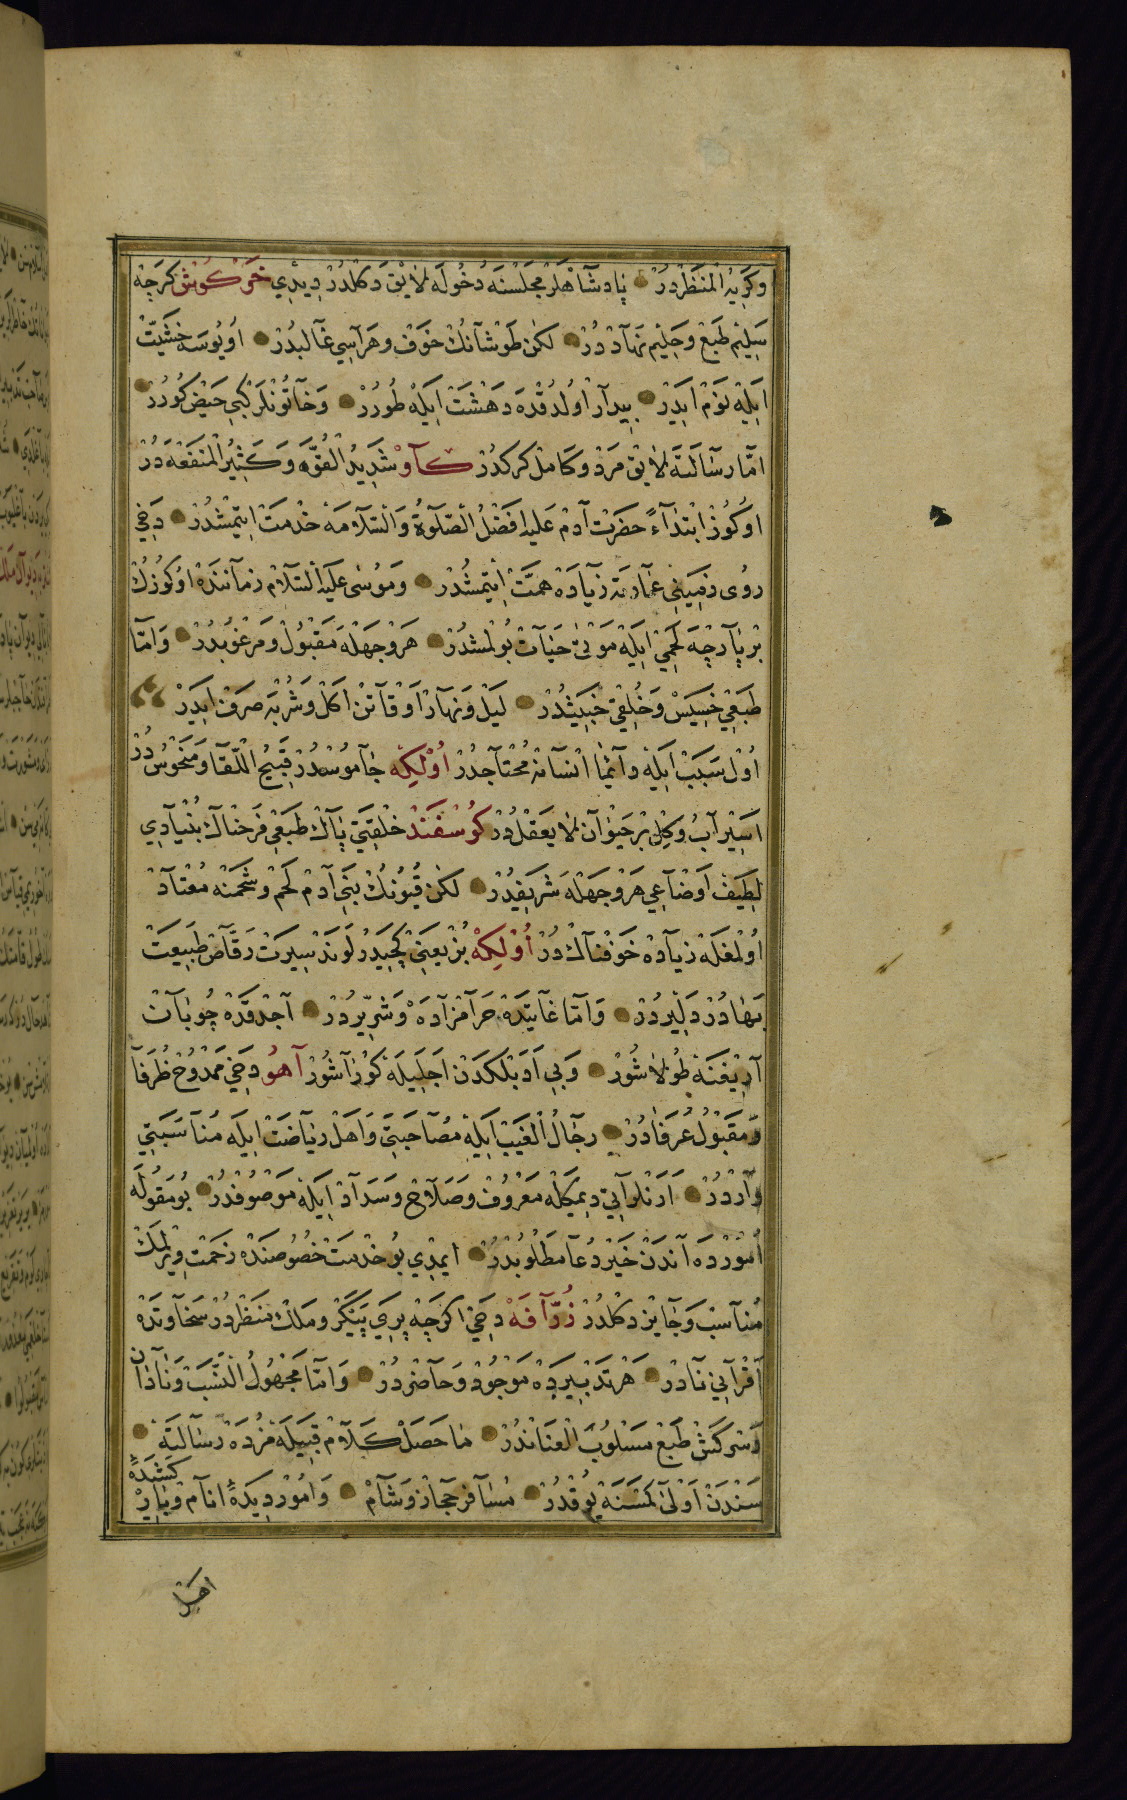 وكريه المنظردر پادشاهلر مجلسنه دخوله لايق دكلدر ديدي خركوش كرچه
سليم طبع وحليم نهاددر لكن طوشانك خوف وهراسي غالبدر اويوسه خشيت
ايله نوم ايدر بيدار اولدقده دهشت ايله طورر وخاتونلر كبي حيض كورر
اما رسالته لايق مرد وكامل كركدر كاو شديد القوه وكثير المنفعه در
اوكوز ابتداء حضرت آدم عليه افضل الصلوة والسلامه خدمت ايتمشدر دخي
روى زميني عمارته زياده همت ايتمشدر وموسى عليه السلام زماننده اوكوزك
بر پارچه لحمي ايله موتى حيات بولمشدر هر وجهله مقبول ومرغوبدر واما
طبعي خسيس وخلقي خبيثدر ليل ونهار اوقاتن اكل وشربه صرف ايدر
اول سبب ايله دائما انسانه محتاجدر اولكه جاموسدر قبيح اللقا ومنحوس در
اسير آب وكل بر حيوان لا يعقلدر كوسفند خلقتي پاك طبعي فرحناك بنيادي
لطيف اوضاعي هر وجهله شريفدر لكن قيونك بني آدم لحم وشحمنه معتاد
اولمغله زياده خوفناك در اولكه بز يعني كچيدر لوند سيرت رقاص طبيعت
بهادر دليردر واما غايتده حرامزاده وشريردر آجدقده چوبان
آريغنه طولاشور وبي ادبلكدن اجليله كوز آشور آهو دخي ممدوح ظرفا
ومقبول عرفادر رجال الغيب ايله مصاحبتي واهل رياضت ايله مناسبتي
واردر ارنلر آتي ديمكله معروف وصلاح وسداد ايله موصوفدر بو مقوله
امورده آندن خير دعا مطلوبدر ايمدي بو خدمت خصوصنده زحمت ويرلمك
مناسب وجايز دكلدر زرافه دخي اكرچه پري پيكر وملك منظردر سخاوتده
اقراني نادر هر تدبيرده موجود وحاضردر واما مجهول النسب ونادان
وسركش طبع مسلوب العناندر ما حصل كلام قبيله مزده رسالته
سندن اولى كمسنه يوقدر مسافر حجاز وشام وامور ديده انام وبار كشيده
اهر